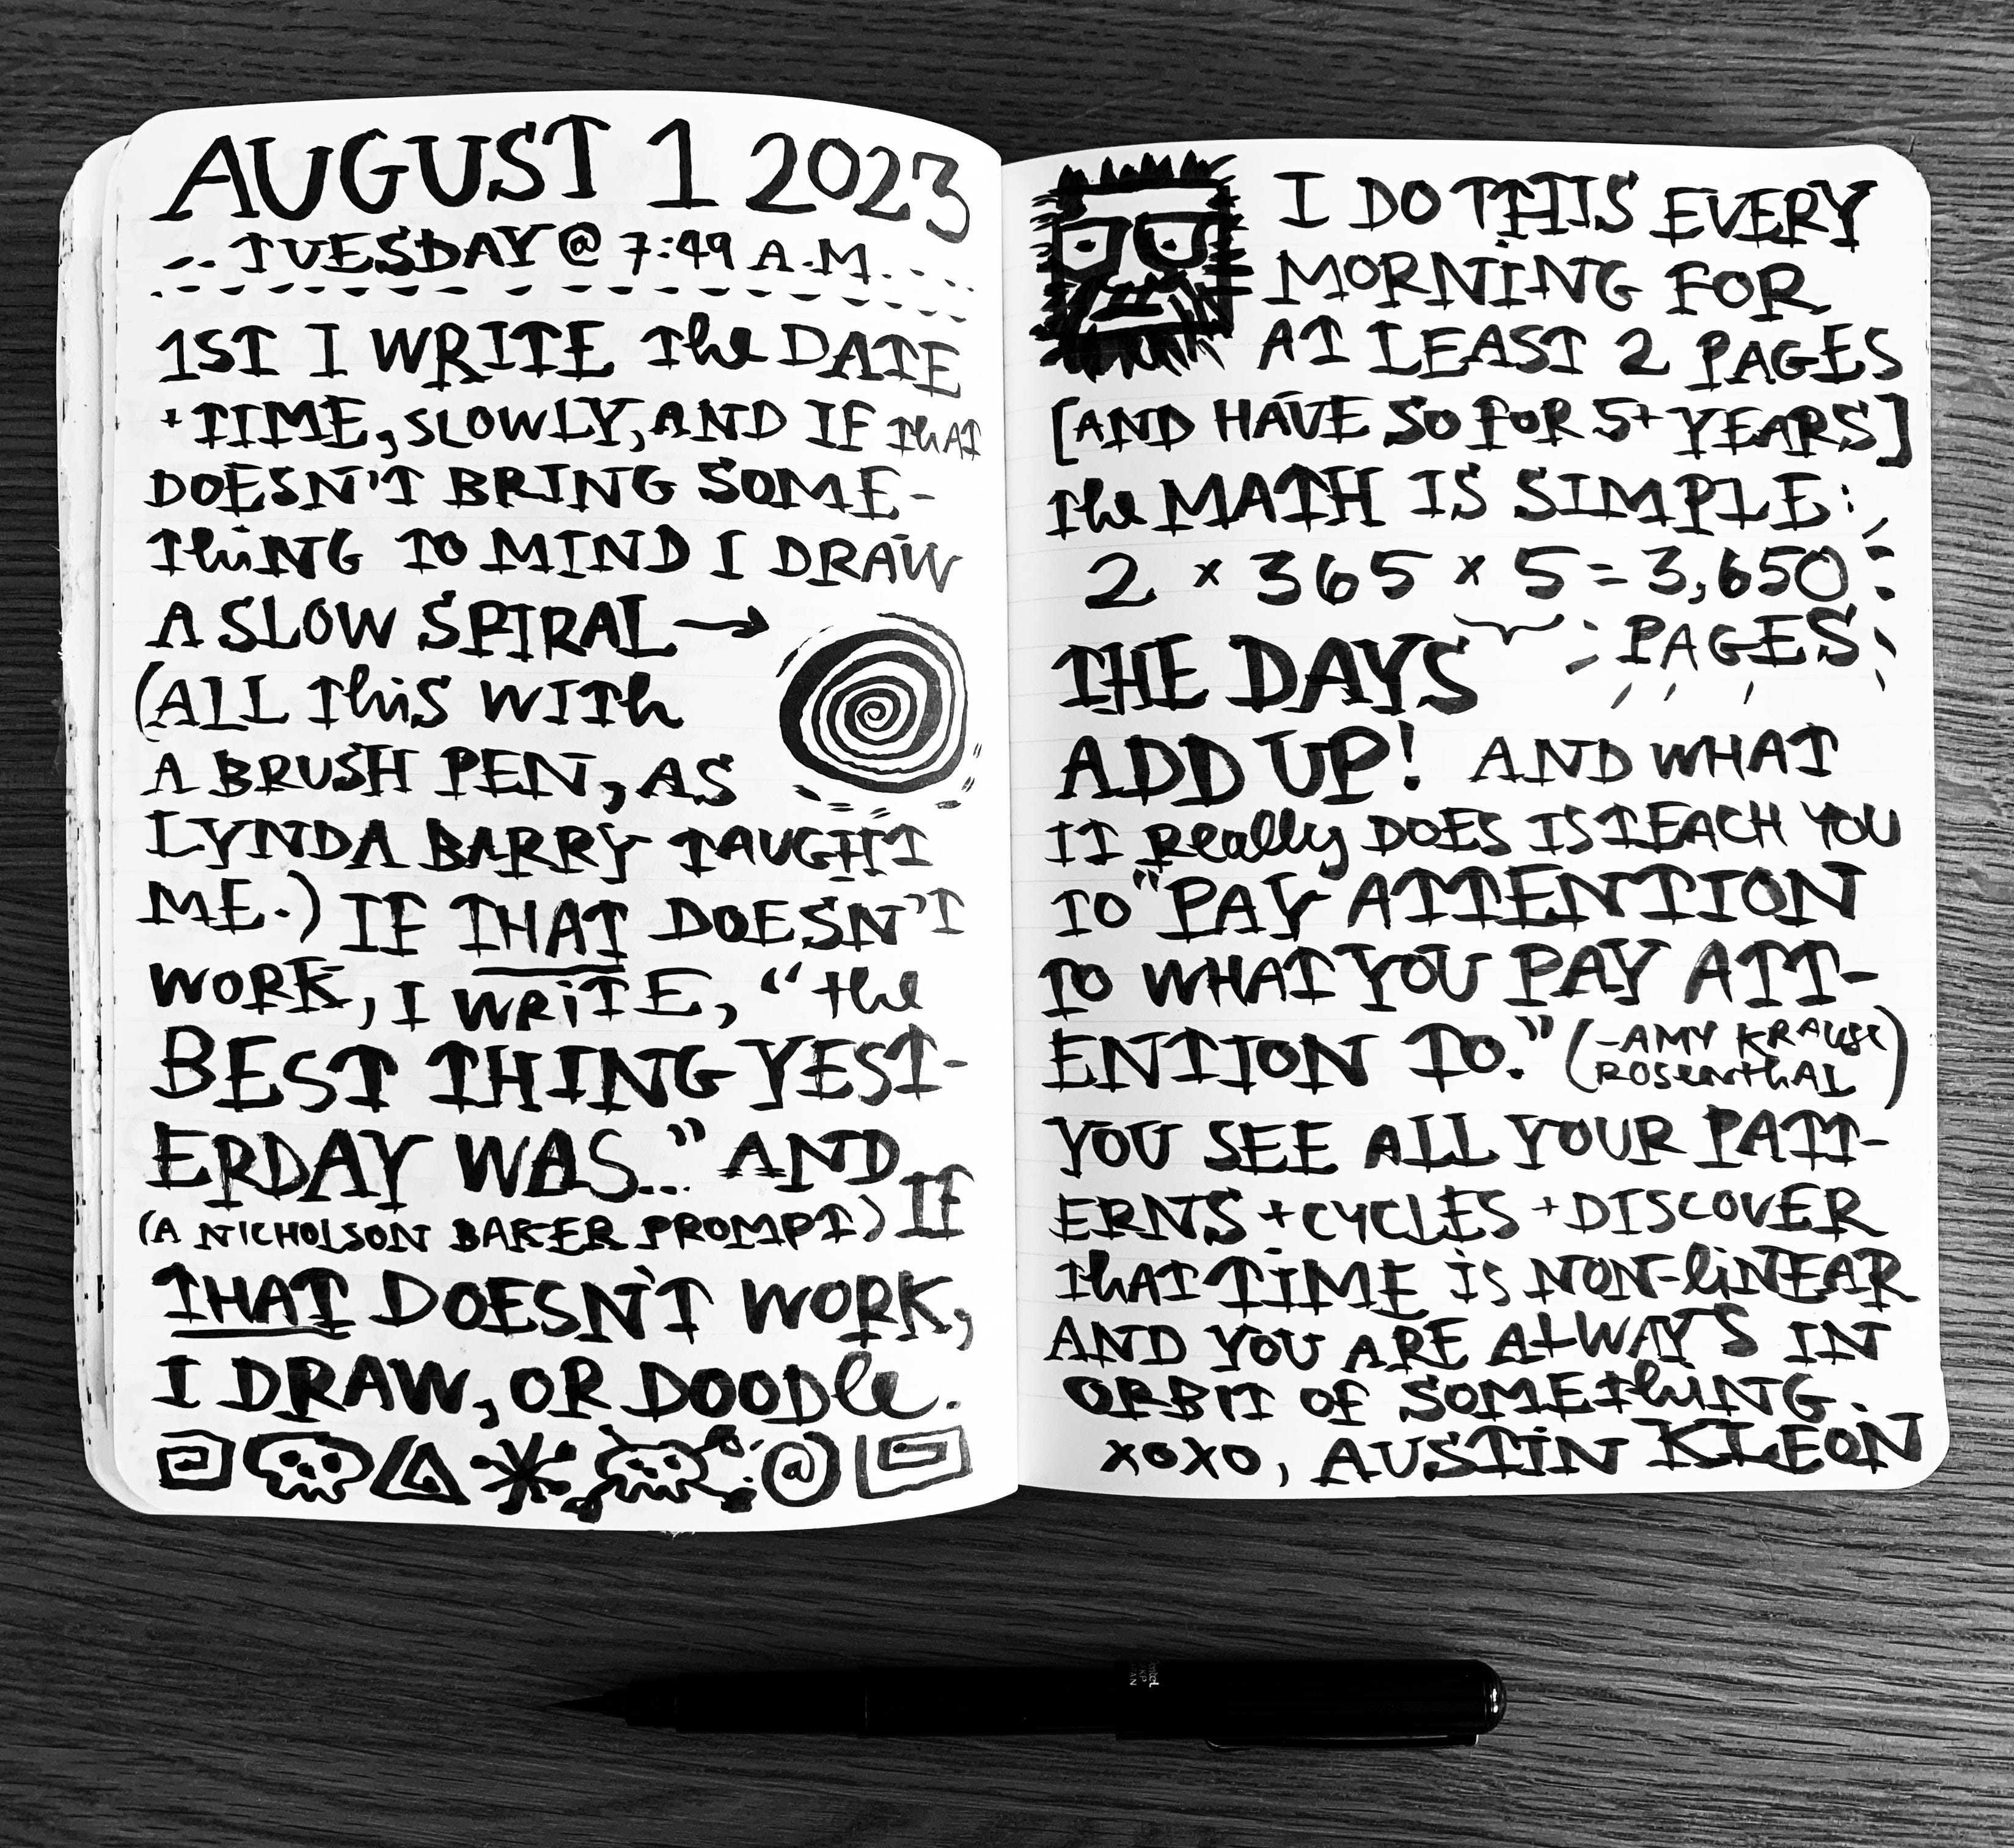 AUGUST 1 2023
TUESDAY @ 7:49 A.M.
1ST I WRITE the DATE
+ TIME, SLOWLY, AND IF thAT
DOESN'T BRING SOME-
thiNG TO MIND I DRAW
A SLOW SPIRAL →
(ALL thiS WITh
A BRUSH PEN, AS
LYNDA BARRY TAUGHT
ME.) IF THAT DOESN'T
WORK, I WRiTE, "the
BEST THING YEST-
ERDAY WAS..." AND
(A NICHOLSON BAKER PROMPT) IF
THAT DOESN'T WORK,
I DRAW, OR DOODle.
I DO THIS EVERY
MORNiNG FOR
AT LEAST 2 PAGES
[AND HAVE SO FOR 5+ YEARS]
the MATH IS SIMPLE:
2 x 365 x 5 = 3,650
PAGES
THE DAYS
ADD UP! AND WHAT
IT Really DOES IS TEACH YOU
TO "PAY ATTENTION
TO WHAT YOU PAY ATT-
ENTION TO." (-AMY KRAUSe
ROSenthAL)
YOU SEE ALL YOUR PATT-
ERNS + CYCLES + DISCOVER
thAT TiME iS NON-liNEAR
AND YOU ARE ALWAYS IN
ORBIT OF SOMEthiNG.
xoxo, AUSTiN KLEON
Pentel